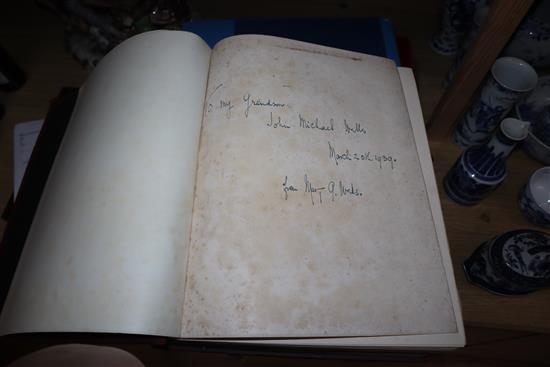 To my Grandson
John Michael Wells
March 20th 1939.
from Mary G. Wells.